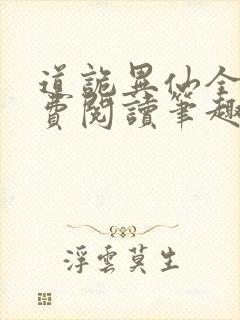 道詭異仙全
費閱讀筆趣
浮雲莫生